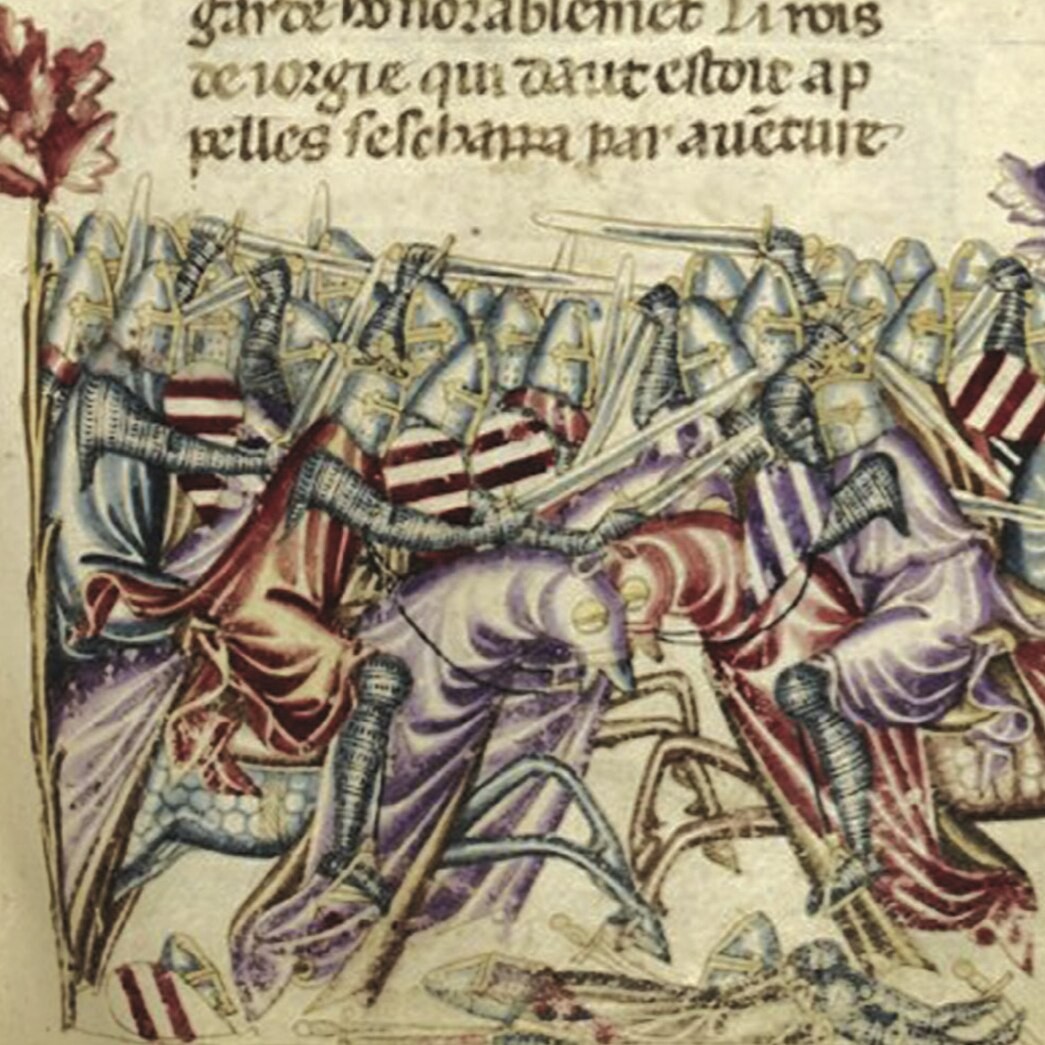 garde honorablemēt Li rois
de iorgie qui daut estoit ap
pelles seschappa par auēture